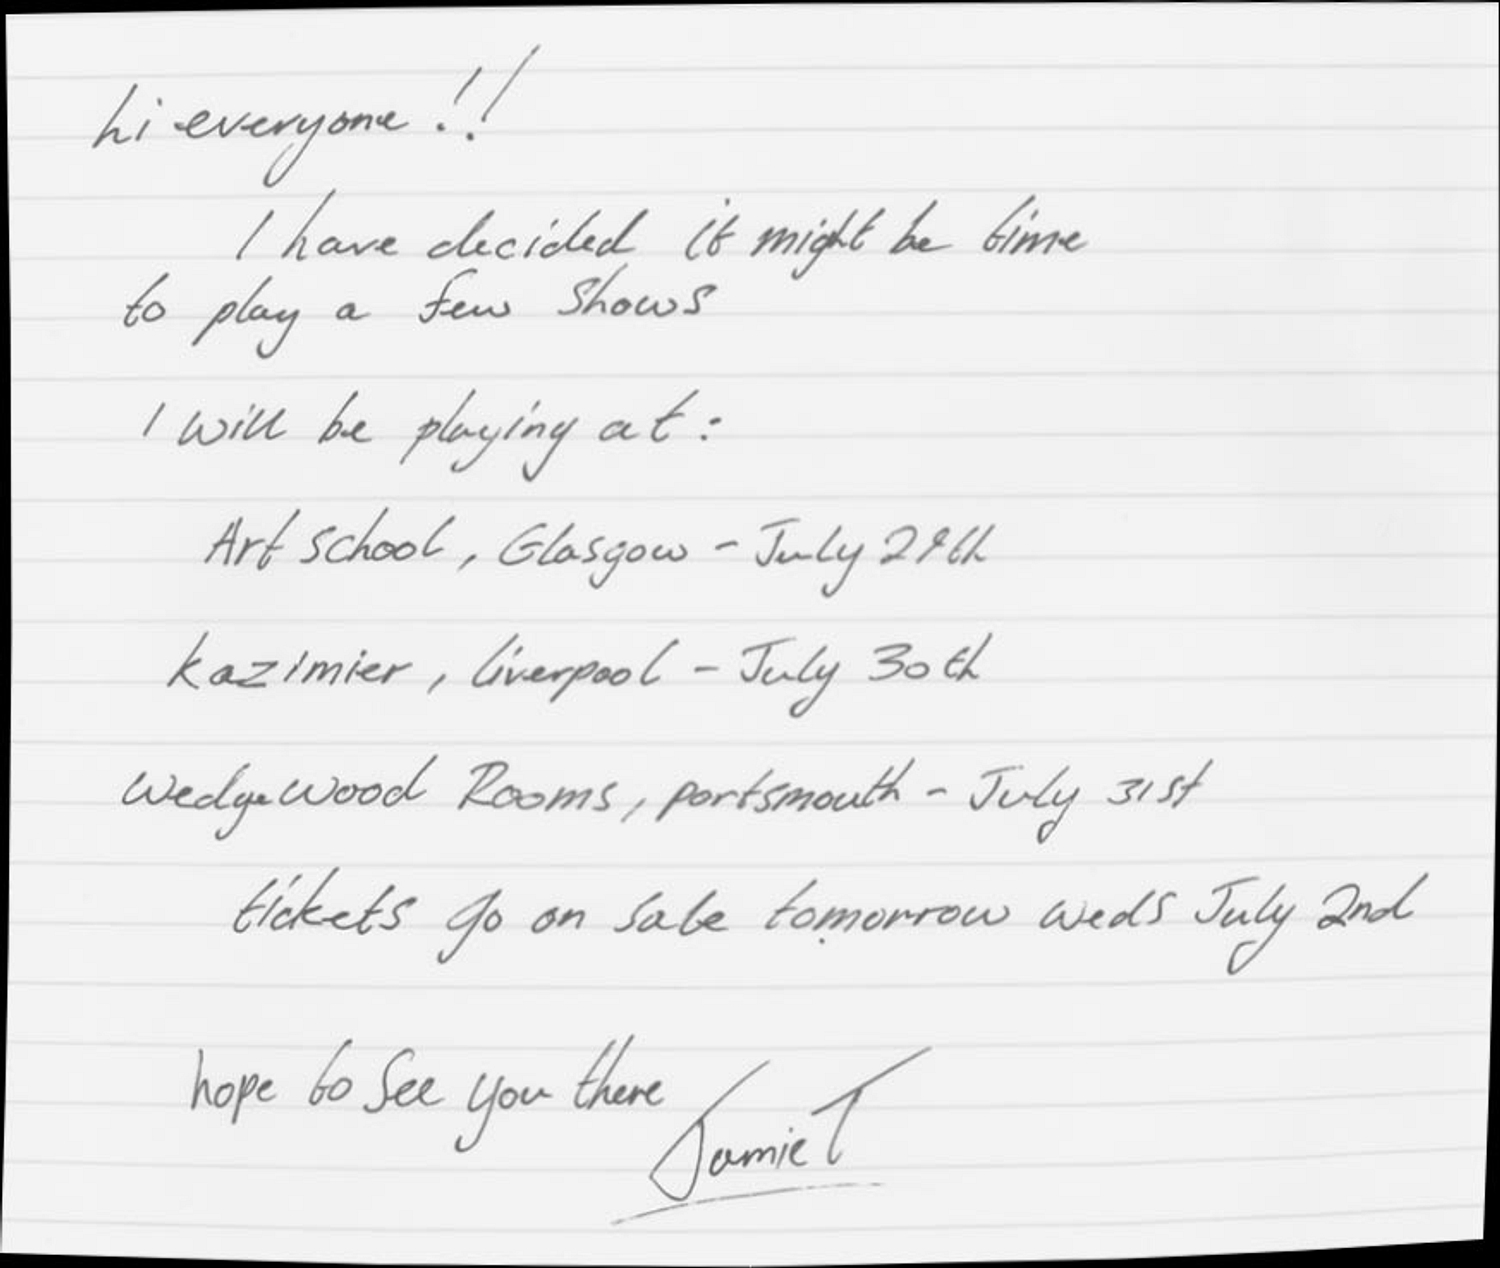 hi everyone !!
I have decided it might be time
to play a few shows
I will be playing at:
Art school, Glasgow - July 29th
kazimier, liverpool - July 30th
wedgewood Rooms, portsmouth - July 31st
tickets go on sale tomorrow weds July 2nd
hope to see you there
Jamie T